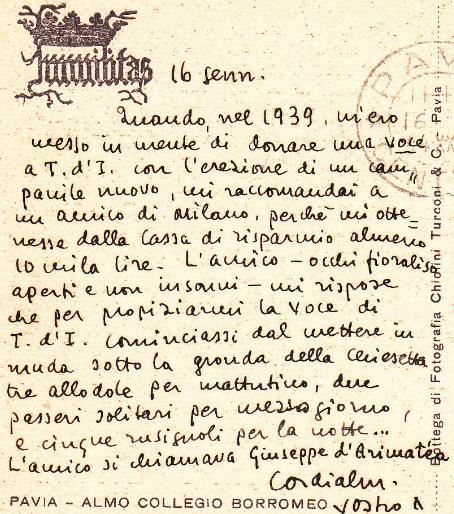 Humilitas
16 genn.
Quando, nel 1939, m'ero
messo in mente di donare una voce
a T. d'I. con l'erezione di un cam=
panile nuovo, mi raccomandai a
un amico di Milano, perché mi otte=
nesse dalla Cassa di risparmio almeno
10 mila lire. L'amico - occhi fioraliso
aperti e non insonni - mi rispose
che per propiziarmi la voce di
T. d'I. cominciassi dal mettere in
muda sotto la gronda della chiesetta
tre allodole per mattutino, due
passeri solitari per mezzogiorno,
e cinque usignoli per la notte...
L'amico si chiamava Giuseppe d'Arimatéa
Cordialm.
Vostro
PAVIA - ALMO COLLEGIO BORROMEO
Bottega di Fotografia Chiolini Turconi & C. - Pavia
PAV